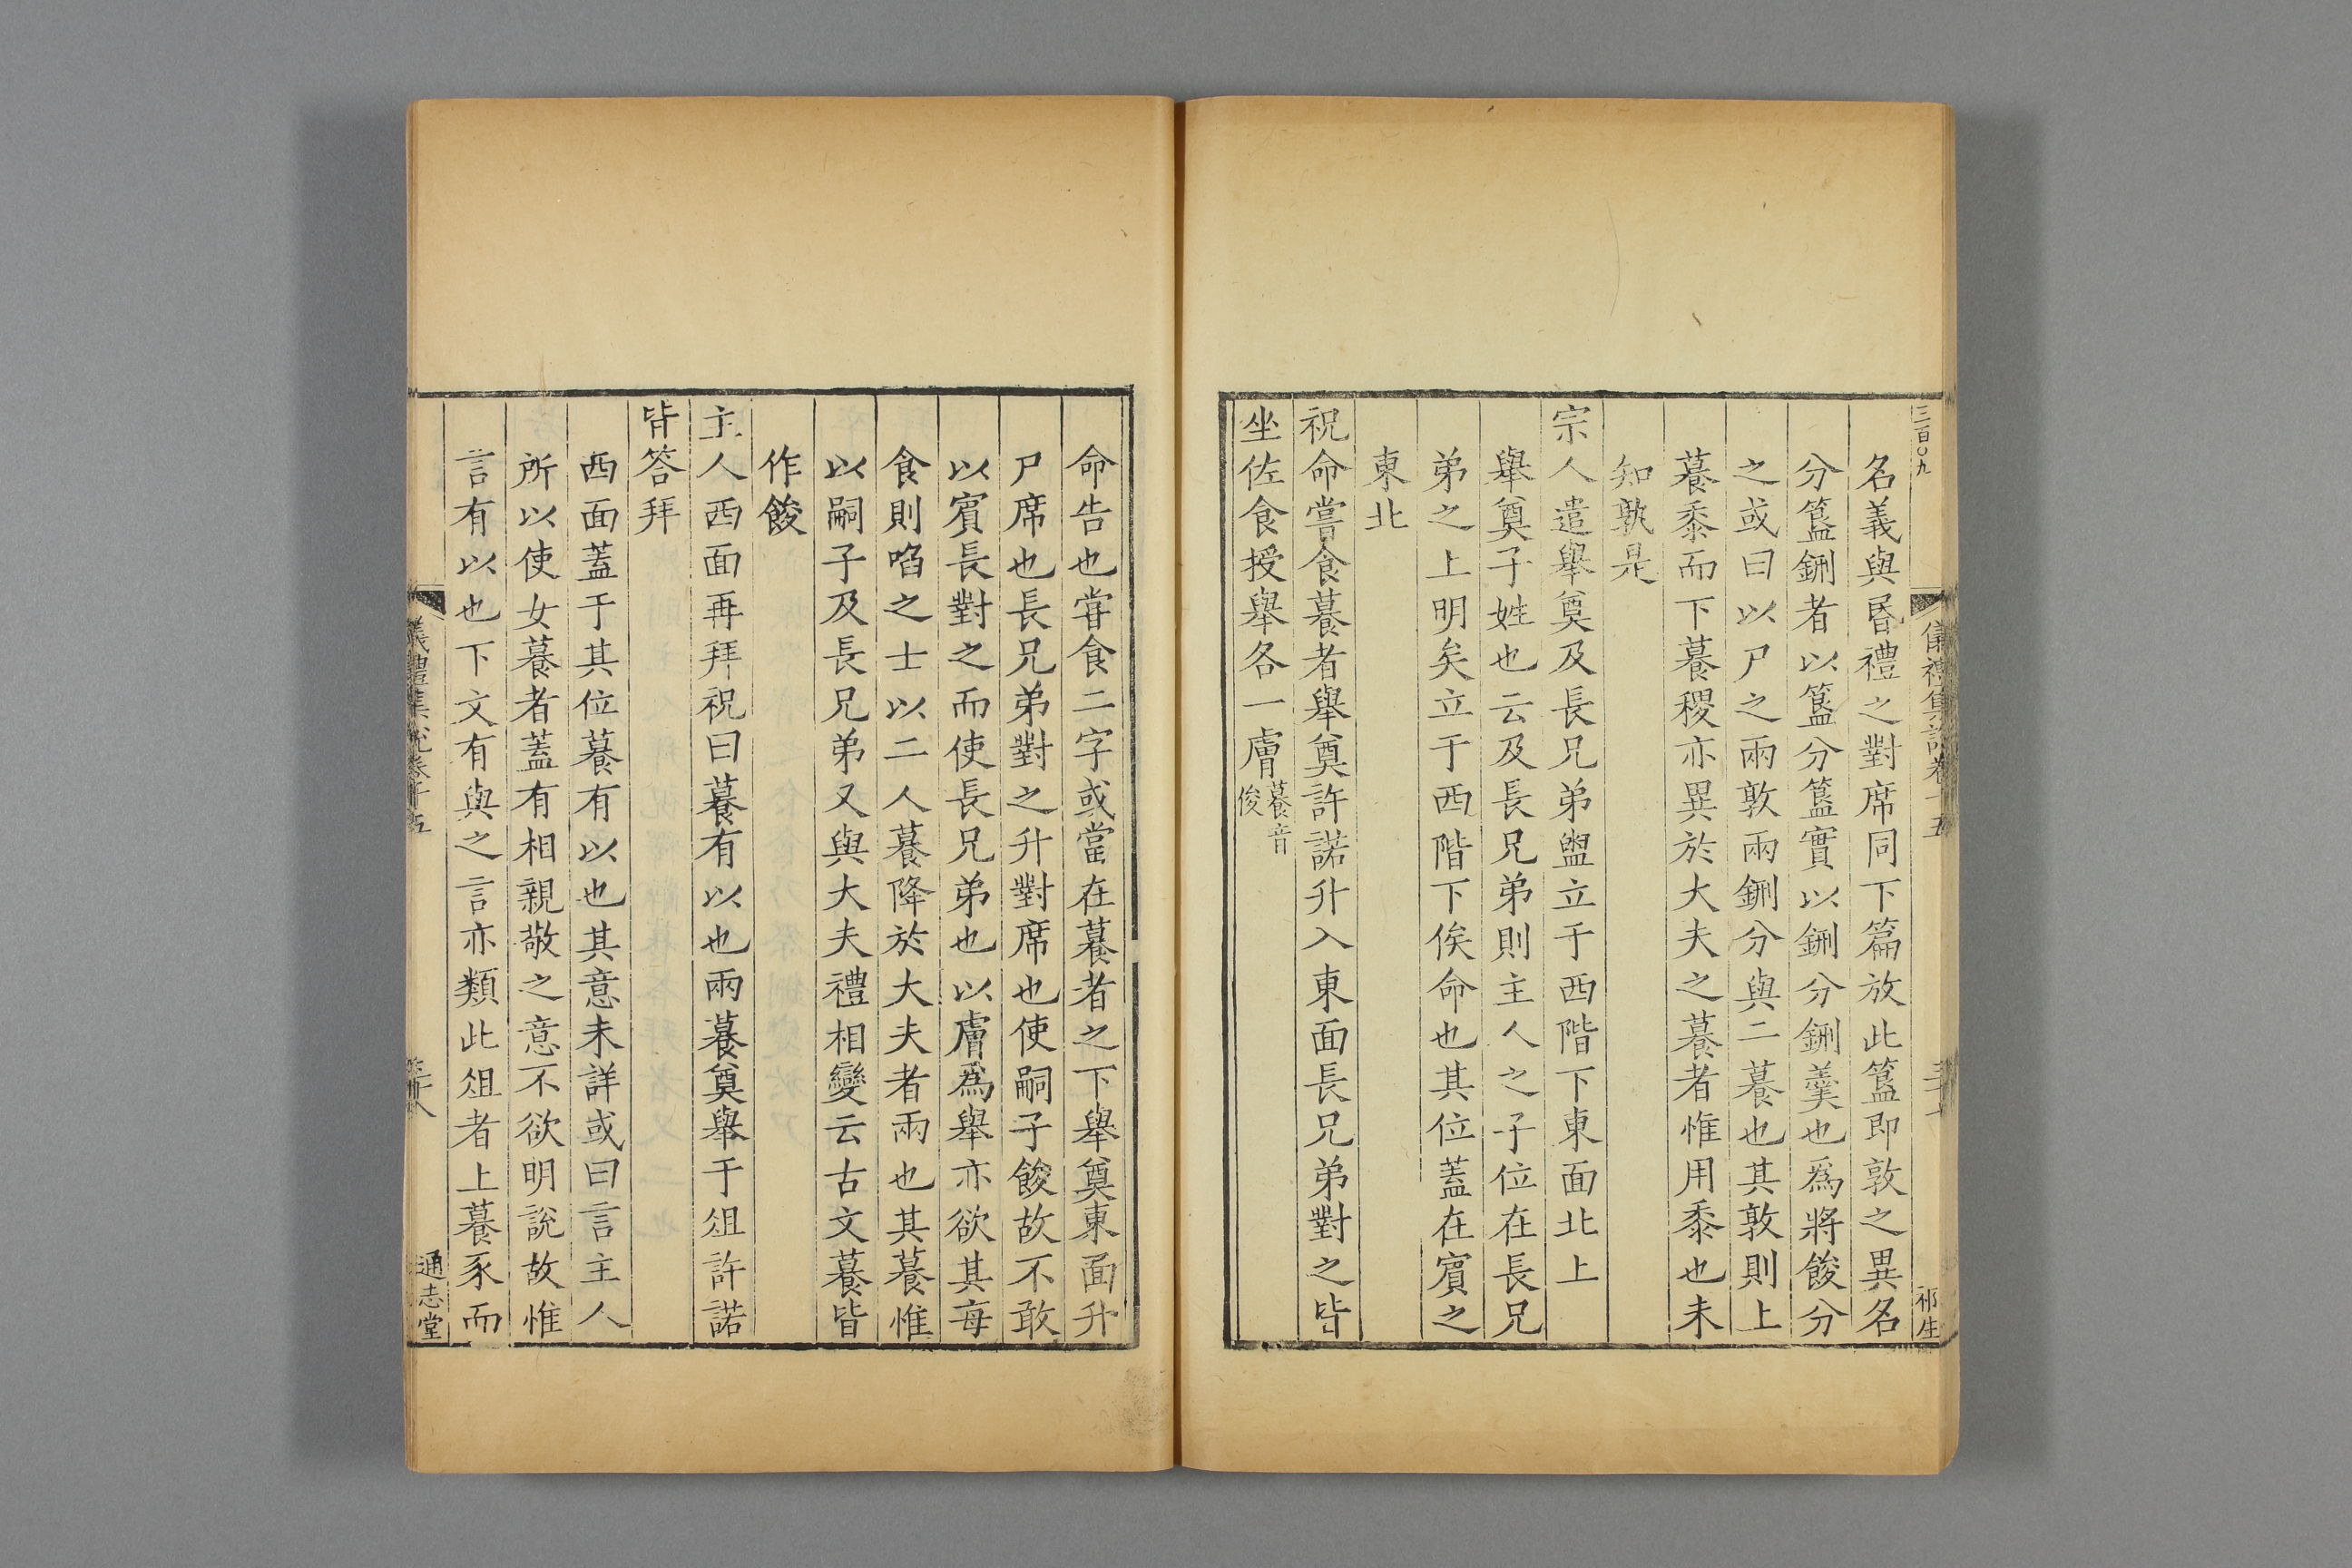 三百〇九
儀禮集說卷十五
祁生
名義與昬禮之對席同下篇放此簋即敦之異名
分簋鉶者以簋分簋實以鉶分鉶羹也爲將餕分
之或曰以尸之兩敦兩鉶分與二䉵也其敦則上
䉵黍而下䉵稷亦異於大夫之䉵者惟用黍也未
知孰是
宗人遣舉奠及長兄弟盥立于西階下東面北上
舉奠子姓也云及長兄弟則主人之子位在長兄
弟之上明矣立于西階下俟命也其位蓋在賓之
東北
祝命嘗食䉵者舉奠許諾升入東面長兄弟對之皆
坐佐食授舉各一膚䉵音俊
命告也嘗食二字或當在䉵者之下舉奠東面升
尸席也長兄弟對之升對席也使嗣子餕故不敢
以賓長對之而使長兄弟也以膚爲舉亦欲其每
食則啗之士以二人䉵降於大夫者兩也其䉵惟
以嗣子及長兄弟又與大夫禮相變云古文䉵皆
作餕
主人西面再拜祝曰䉵有以也兩䉵奠舉于俎許諾
皆答拜
西面蓋于其位䉵有以也其意未詳或曰言主人
所以使女䉵者蓋有相親敬之意不欲明說故惟
言有以也下文有與之言亦類此俎者上䉵豕而
儀禮集說卷十五
通志堂